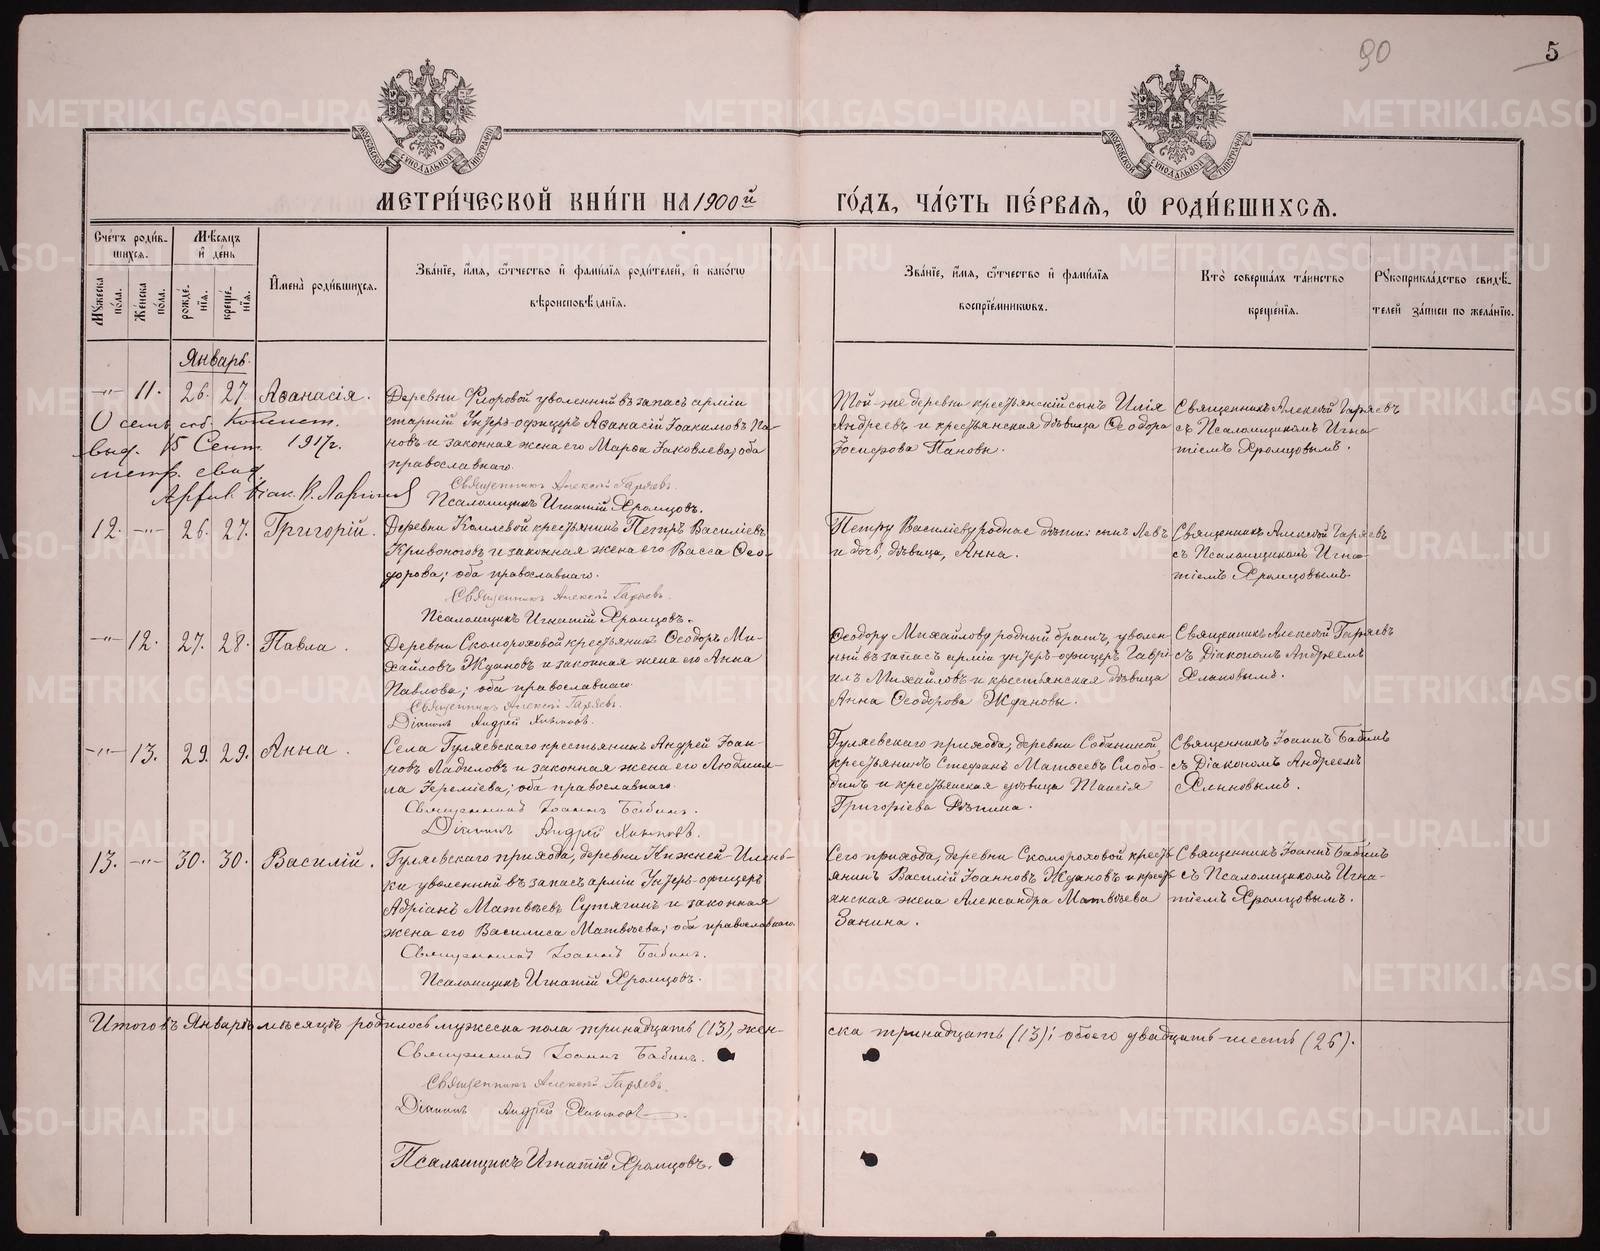 90
5
МЕТРИ́ЧЕСКОЙ КНИ́ГИ НА 1900й
ГО́ДЪ, ЧА́СТЬ ПЕ́РВАѦ, Ѡ РОДИ́ВШИХСѦ.
Сче́тъ роди́в-
шихсѧ.
Мѣ́сѧцъ
и де́нь
Мꙋ́жеска по́ла.
Же́нска по́ла.
рожде́-
нїѧ.
креще́-
нїѧ.
Имена̀ роди́вшихсѧ.
Зва́нїе, и́мѧ, ѻ́тчество и фами́лїѧ роди́телей, и како́гѡ
вѣроисповѣ́данїѧ.
Зва́нїе, и́мѧ, ѻ́тчество и фами́лїѧ
воспрїе́мникѡвъ.
Кто̀ соверша́лъ та́инство
креще́нїѧ.
Рꙋкоприкла́дство свидѣ́-
телей за́писи по жела́нїю.
Январь.
-"- 11. 26. 27. Аѳанасія.
Деревни Флоровой уволенный въ запасъ арміи
старшій Унтеръ-офицеръ Аѳанасій Іоакимовъ Па-
новъ и законная жена его Марѳа Іаковлева; оба
православнаго.
Священникъ Алексѣй Гаряевъ.
Псаломщикъ Игнатій Храмцовъ.
Той-же деревни крестьянскій сынъ Илія
Андреевъ и крестьянская дѣвица Ѳеодора
Іосифова Пановы.
Священникъ Алексѣй Гаряевъ
съ Псаломщикомъ Игна-
тіемъ Храмцовымъ.
О семъ
выд. 15 Сент. 1917г.
метр. свид.
12. -"- 26. 27. Григорій.
Деревни Комлевой крестьянинъ Петръ Василіевъ
Кривоноговъ и законная жена его Васса Ѳео-
дорова; оба православнаго.
Священникъ Алексѣй Гаряевъ.
Псаломщикъ Игнатій Храмцовъ.
Петру Василіеву родные дѣти: сынъ Левъ
и дочь, дѣвица, Анна.
Священникъ Алексѣй Гаряевъ
съ Псаломщикомъ Игна-
тіемъ Храмцовымъ.
-"- 12. 27. 28. Павла.
Деревни Скомороховой крестьянинъ Ѳеодоръ Ми-
хайловъ Ждановъ и законная жена его Анна
Павлова; оба православнаго.
Священникъ Алексѣй Гаряевъ.
Діаконъ Андрей Хлыновъ.
Ѳеодору Михайлову родный братъ, уволен-
ный въ запасъ арміи унтеръ-офицеръ Гаврі-
илъ Михайловъ и крестьянская дѣвица
Анна Ѳеодорова Ждановы.
Священникъ Алексѣй Гаряевъ
съ Діакономъ Андреемъ
Хлыновымъ.
-"- 13. 29. 29. Анна.
Села Гуляевскаго крестьянинъ Андрей Іоан-
новъ Ладиловъ и законная жена его Людмил-
ла Іереміева; оба православнаго.
Священникъ Іоаннъ Бабинъ.
Діаконъ Андрей Хлыновъ.
Гуляевскаго прихода, деревни Собаниной,
крестьянинъ Стефанъ Матѳеевъ Слобо-
динъ и крестьянская дѣвица Таисія
Григоріева Рѣпина.
Священникъ Іоаннъ Бабинъ
съ Діакономъ Андреемъ
Хлыновымъ.
13. -"- 30. 30. Василій.
Гуляевскаго прихода, деревни Нижней-Илень-
ки уволенный въ запасъ арміи Унтеръ-офицеръ
Адріанъ Матвѣевъ Сутягинъ и законная
жена его Василиса Матвѣева; оба православнаго.
Священникъ Іоаннъ Бабинъ.
Псаломщикъ Игнатій Храмцовъ.
Сего прихода, деревни Скомороховой кресть-
янинъ Василій Іоанновъ Ждановъ и кресть-
янская жена Александра Матвѣева
Занина.
Священникъ Іоаннъ Бабинъ
съ Псаломщикомъ Игна-
тіемъ Храмцовымъ.
Итого въ Январѣ мѣсяцѣ родилось мужеска пола тринадцать (13), жен-
ска тринадцать (13); обоего двадцать шесть (26).
Священникъ Іоаннъ Бабинъ.
Священникъ Алексѣй Гаряевъ.
Діаконъ Андрей Хлыновъ.
Псаломщикъ Игнатій Храмцовъ.